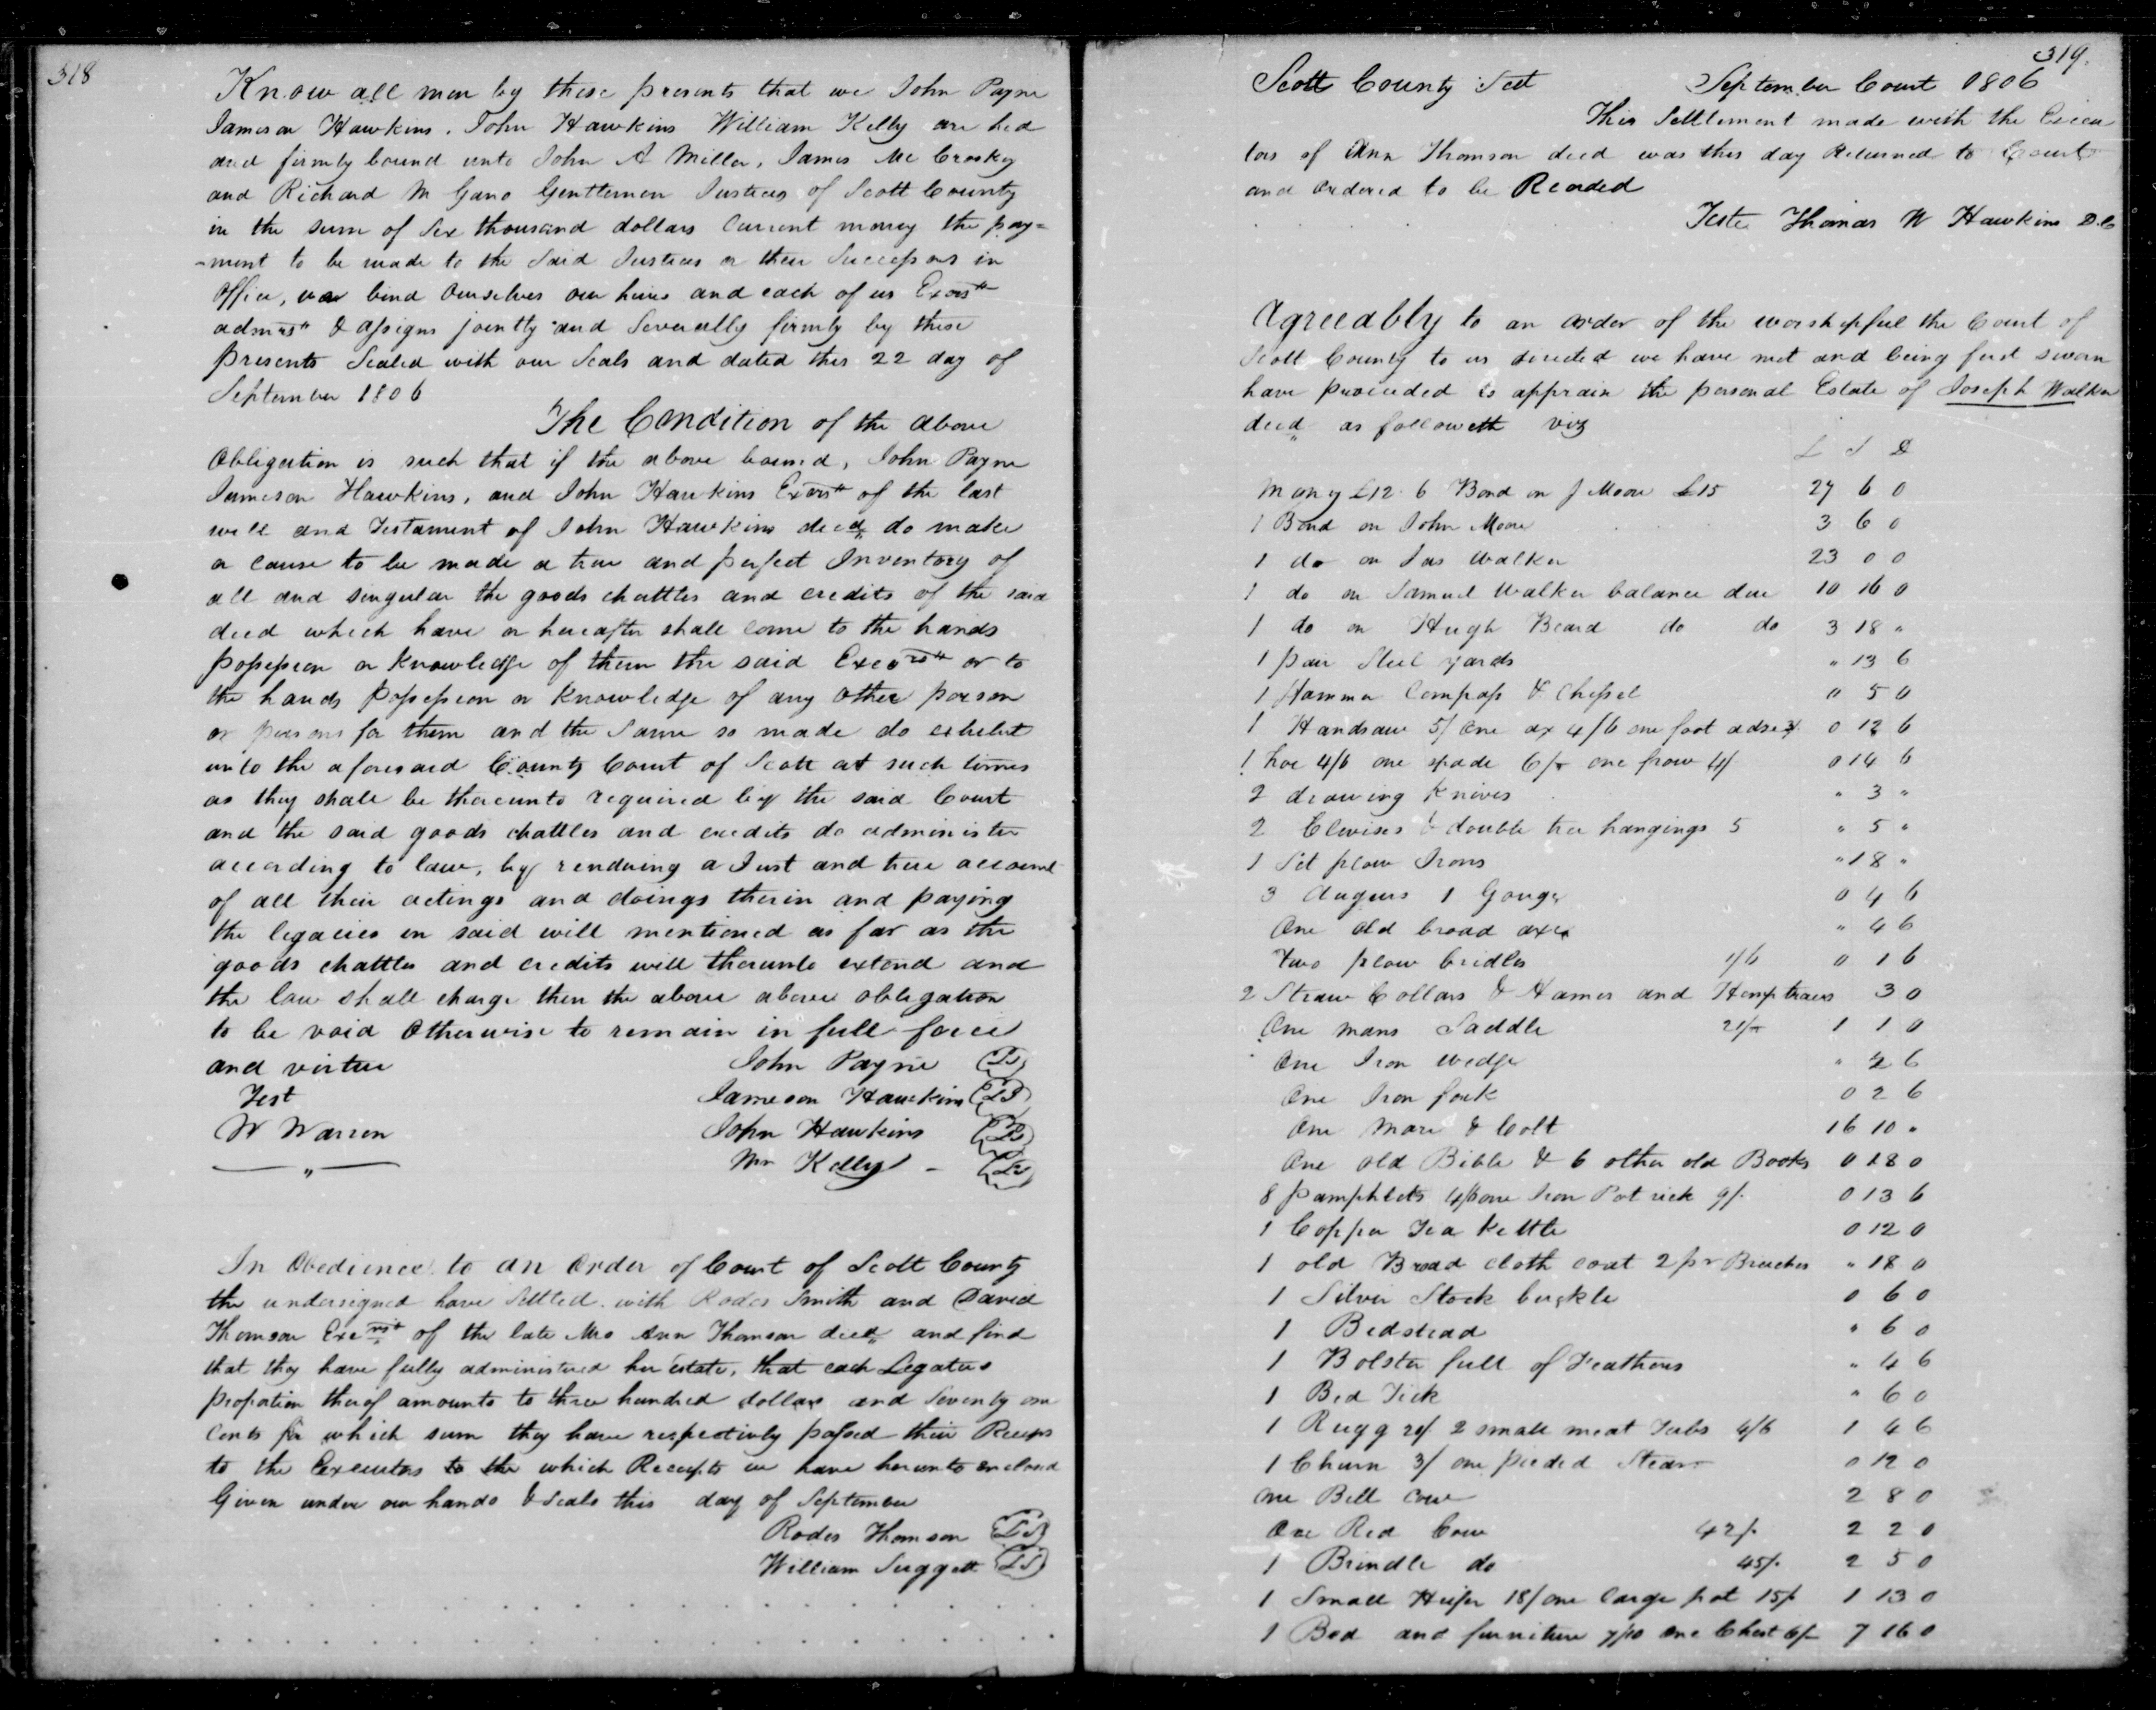 318
Know all men by these presents that we John Payne
Jameson Hawkins, John Hawkins William Kelly are hed
and firmly bound unto John A Miller, James Mc Crosky
and Richard M Gano Gentlemen Justices of Scott County
in the sum of Six thousand dollars Current money the pay=
-ment to be made to the Said Justices or their Successors in
Office, we bind Ourselves our heirs and each of us Exors"
admrs" & assigns jointly and Severally firmly by these
presents Sealed with our Seals and dated this 22 day of
September 1806
The Condition of the above
Obligation is such that if the above bound, John Payne
Jameson Hawkins, and John Hawkins Exors" of the last
will and Testament of John Hawkins decd do make
or cause to be made a true and perfect Inventory of
all and singular the goods chattles and credits of the said
decd which have or hereafter shall come to the hands
possession or knowledge of them the said Exeors" or to
the hands possession or knowledge of any other person
or persons for them and the same so made do exhibit
unto the aforesaid County Court of Scott at such times
as they shall be thereunto required by the said Court
and the said goods chattles and credits do administer
according to law, by rendering a Just and true account
of all their actings and doings therin and paying
the legacies in said will mentioned as far as the
goods chattles and credits will thereunto extend and
the law shall charge then the above above obligation
to be void Otherwise to remain in full force
and virtue John Payne LS
Test Jameson Hawkins LS
W Warren John Hawkins LS
Wm Kelly - LS
In Obedience to an Order of Court of Scott County
the undersigned have Settled with Rodes Smith and David
Thomson of the late Mrs Ann Thomson decd and find
that they have fully administered her Estate, that each Legatees
proportion therof amounts to three hundred dollars and Seventy one
Cents for which sum they have respectivly passed their
to the Executors to the which Receipts we have hereunto enclosed
Given under our hands & Seals this day of September
Rodes Thomson LS
William Suggett LS
319.
Scott County Sct September Court 1806
This Settlement made with the Execu
tors of Ann Thomson decd was this day Returned to Court
and Ordered to be Recorded
Teste Thomas W Hawkins D.C
Agreeably to an order of the worshipful the Court of
Scott County to us directed we have met and being first sworn
have proceeded to appraise the personal Estate of Joseph Walker
decd as followeth viz
L S D
Mony £12. 6 Bond on J Moore £15 27 6 0
1 Bond on John Moore 3 6 0
1 do on Jas Walker 23 0 0
1 do on Samuel Walker balance due 10 16 0
1 do on Hugh Beard do do 3 18 "
1 pair Steel yards " 13 6
1 Hammer Compass & Chissel 0 5 0
1 Handsaw 5/ One ax 4/6 one foot adze 3/ 0 12 6
1 hoe 4/6 one spade 6/- one frow 4/ 0 14 6
2 drawing Knives " 3 "
2 Clevises & double tree hangings 5 " 5 "
1 Set plow Irons " 18 "
3 Augurs 1 Gouge 0 4 6
One old broad axe " 4 6
Two plow bridles 1/6 0 1 6
2 Straw Collars & Hames and Hemp traces 3 0
One mans Saddle 21/- 1 1 0
One Iron wedge " 2 6
One Iron fork 0 2 6
One Mare & Colt 16 10 "
One old Bible & 6 other old Books 0 18 0
8 pamphlets 4/6 one Iron Pot rick 9/. 0 13 6
1 Copper Tea Kettle 0 12 0
1 old Broad cloth coat 2 pr Breeches " 18 0
1 Silver Stock buckle 0 6 0
1 Bedstead " 6 0
1 Bolster full of Feathers " 4 6
1 Bed Tick " 6 0
1 Rugg 20/ 2 small meat Tubs 4/6 1 4 6
1 Churn 3/ one pieded Stear 0 12 0
One Bell cow 2 8 0
One Red Cow 42/. 2 2 0
1 Brindle do 45/. 2 5 0
1 Small Heifer 18/ one large pot 15/ 1 13 0
1 Bed and furniture 7/10 One Chest 6/- 7 16 0